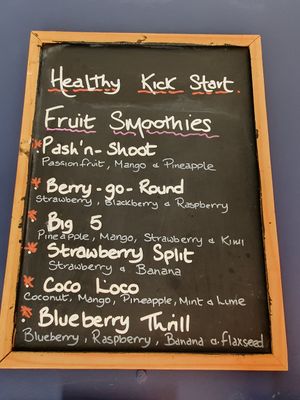 Healthy Kick Start.
Fruit Smoothies
* Pash'n-Shoot
Passionfruit, Mango & Pineapple
* Berry-go-Round
Strawberry, Blackberry & Raspberry
* Big 5
Pineapple, Mango, Strawberry & Kiwi
* Strawberry Split
Strawberry & Banana
* Coco Loco
Coconut, Mango, Pineapple, Mint & Lime
* Blueberry Thrill
Blueberry, Raspberry, Banana & flaxseed